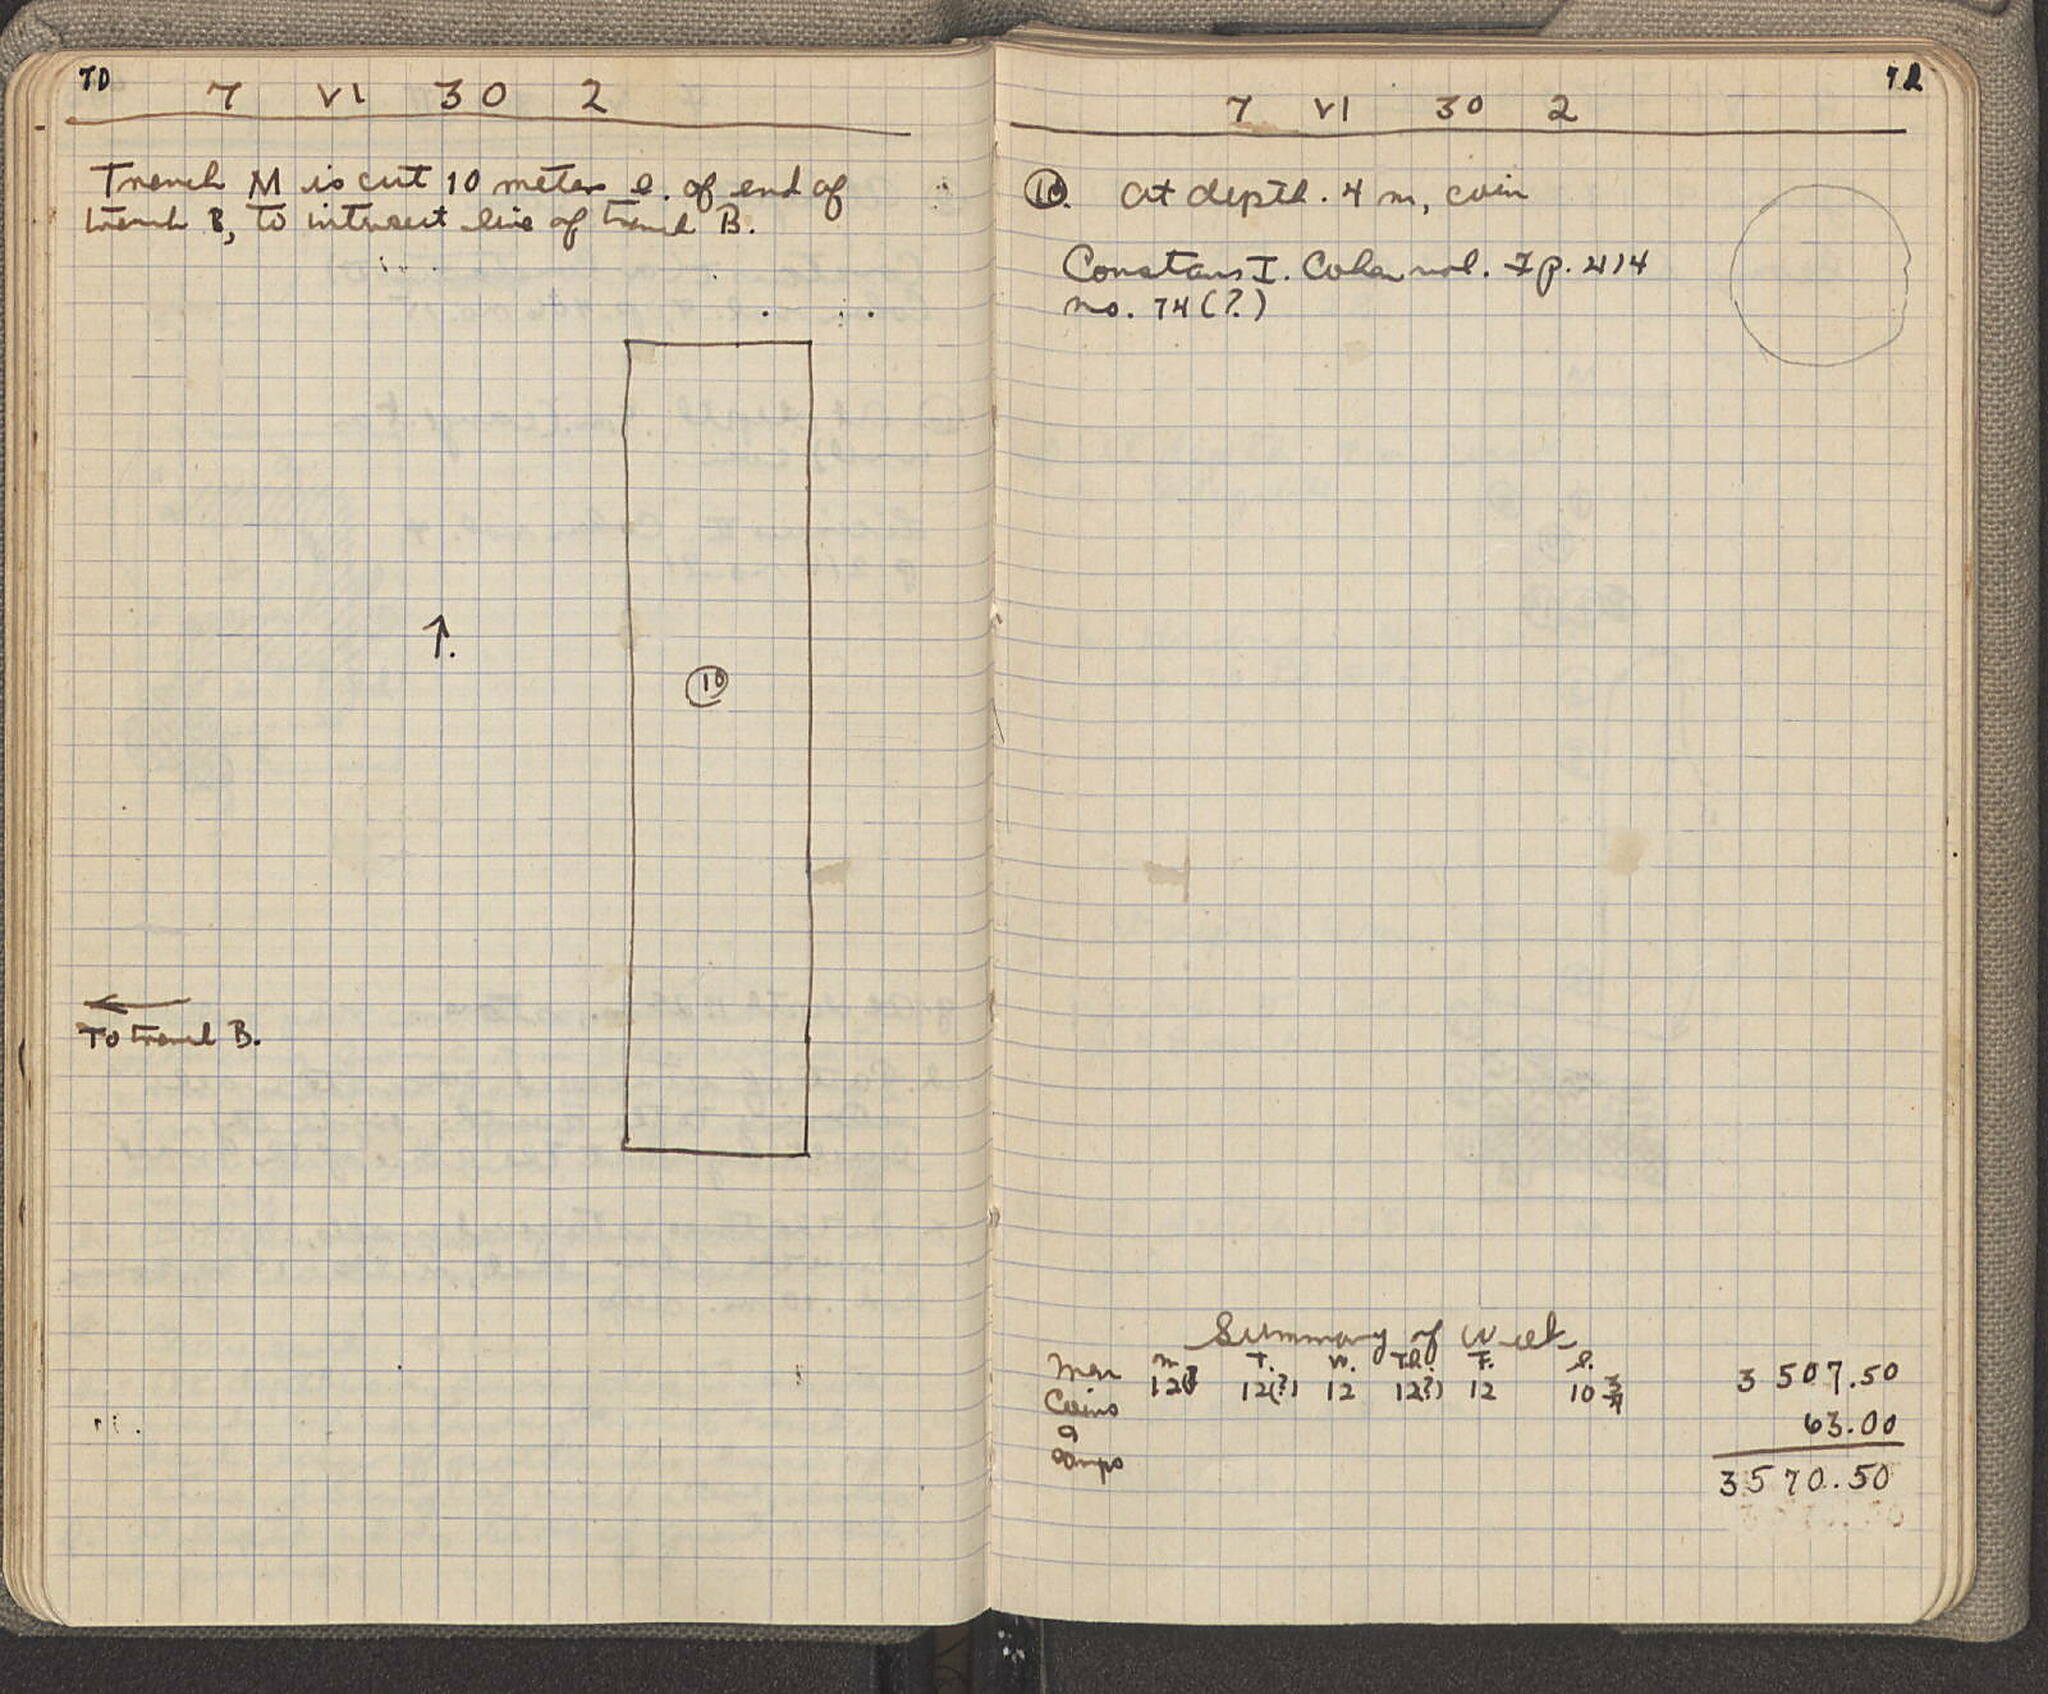 70
7 VI 30 2
Trench M is cut 10 meters e. of end of
trench B, to intersect line of trench B.
↑.
10
←
To trench B.
7 VI 30 2
10. At depth .4 m, coin
Constans I. Cohen vol. 7 p. 414
no. 74 (?)
Summary of Week
M T. W. Th. F. S.
Men 12(?) 12(?) 12 12(?) 12 10 3/4 3 507.50
Coins 63.00
9
3570.50